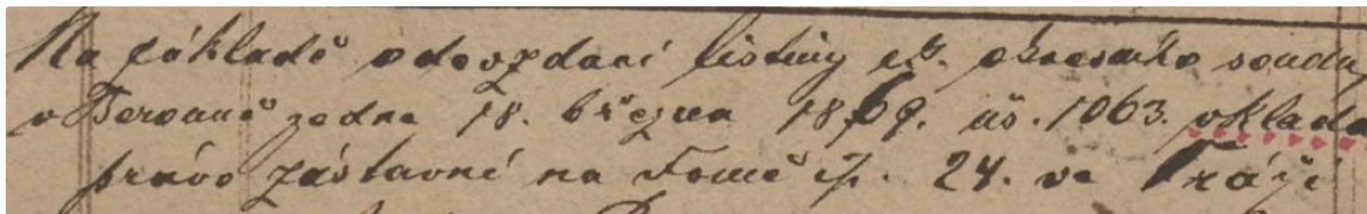 Na základě odevzdací listiny ck. okresního soudu
v Berouně ze dne 18. března 1869. čís. 1063. vkládá
právo zástavní na domě čp. 24. ve